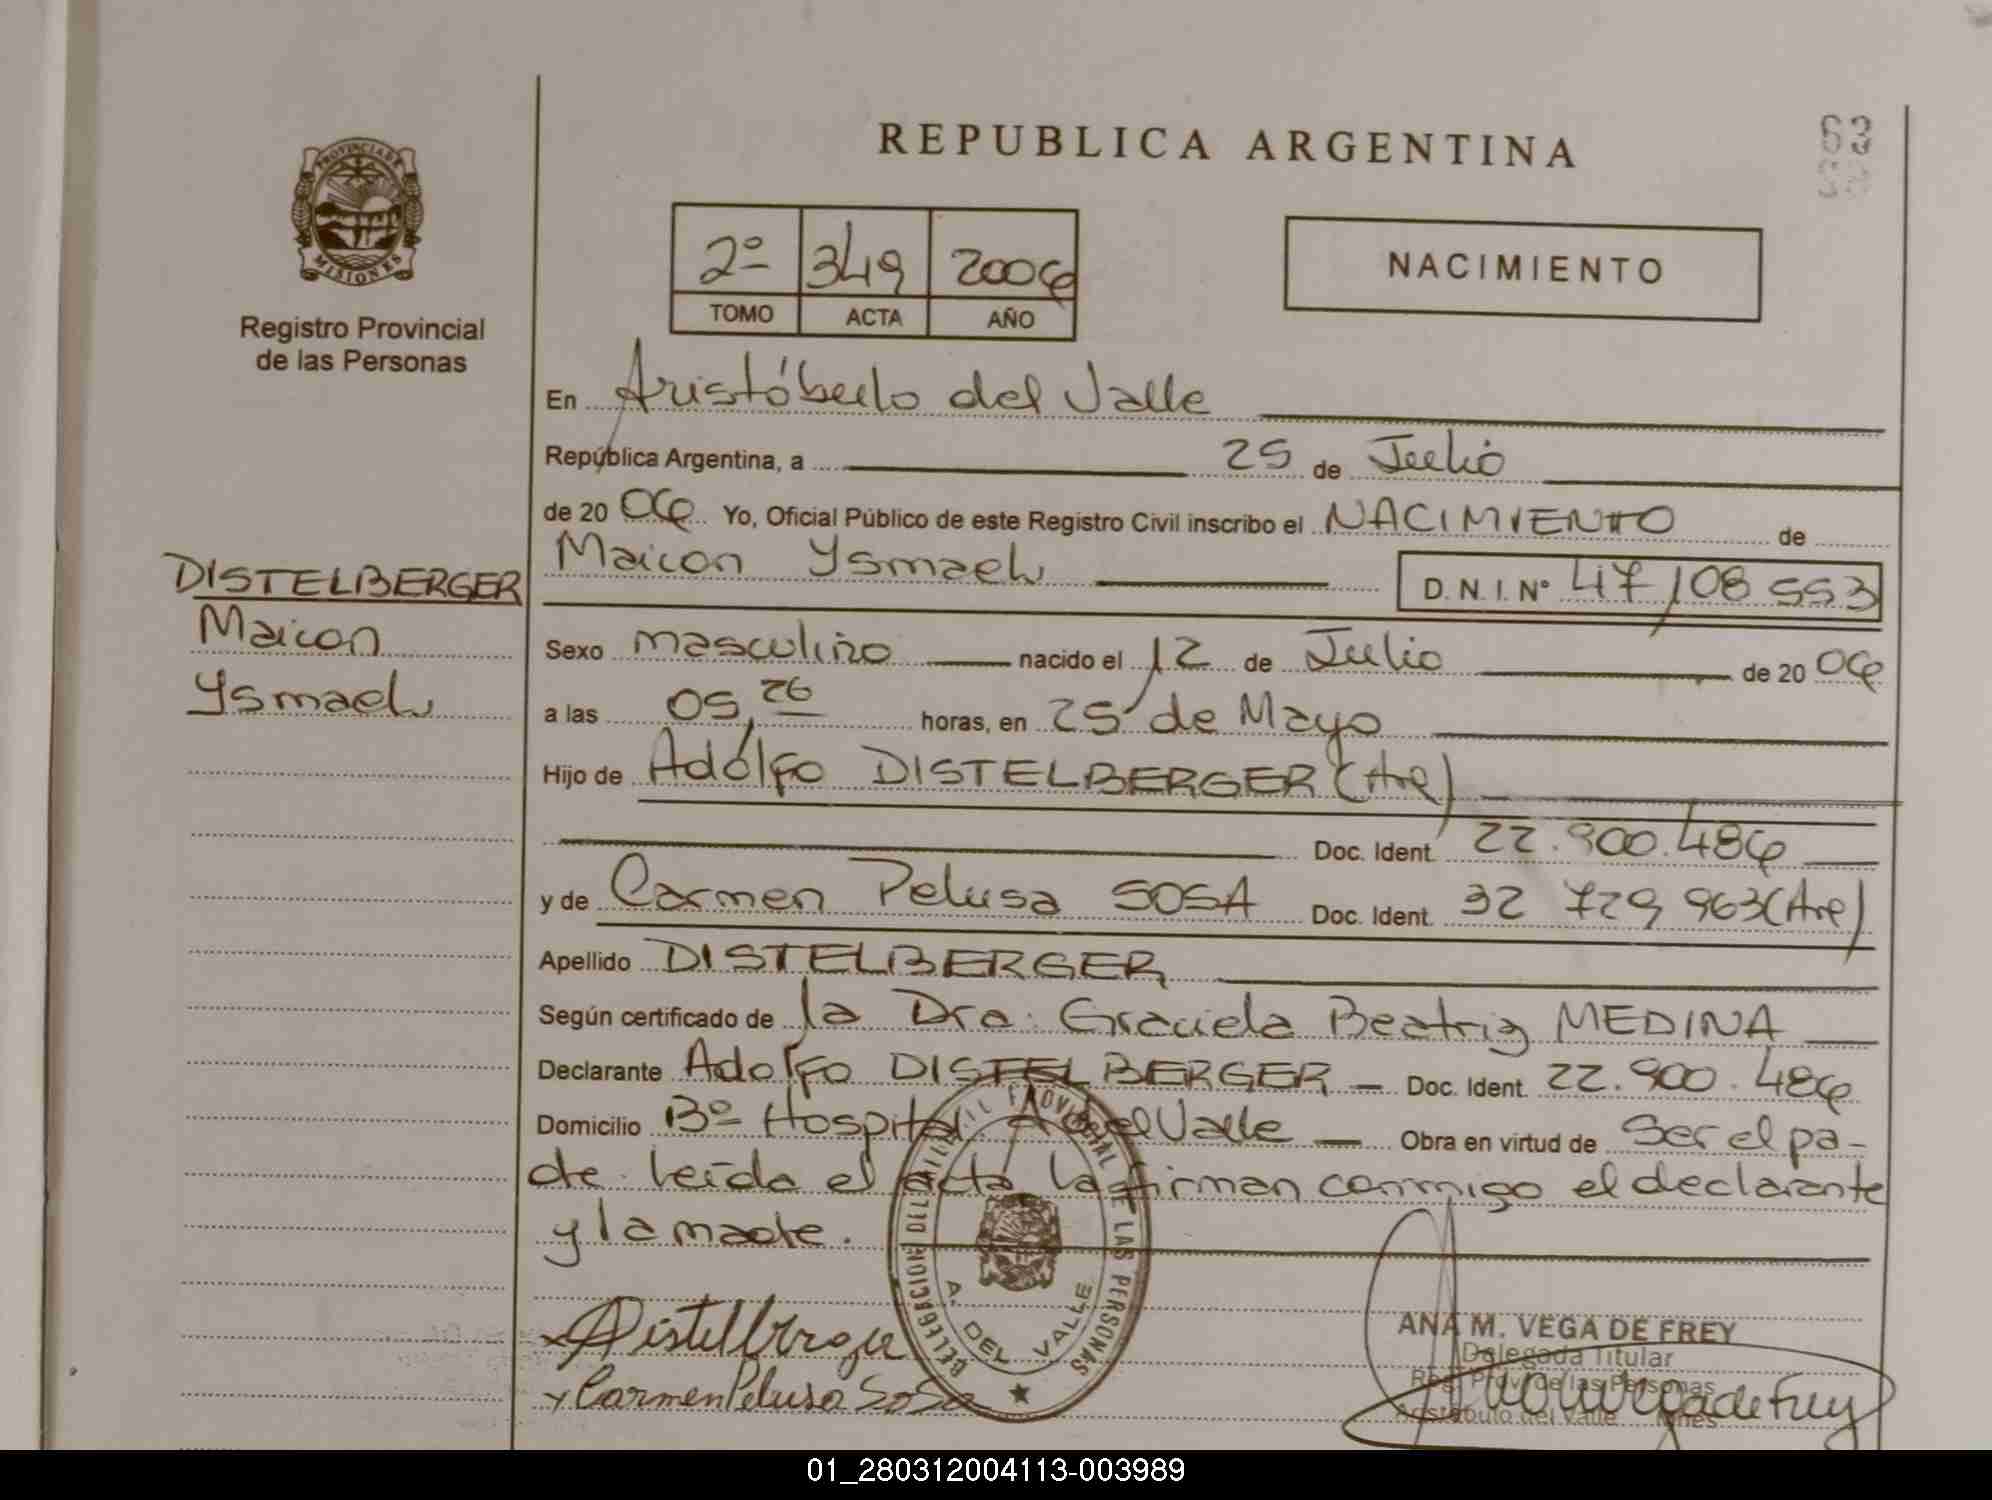 REPUBLICA ARGENTINA
63
PROVINCIA DE
MISIONES
Registro Provincial
de las Personas
2º 349 2006
TOMO ACTA AÑO
NACIMIENTO
En Aristóbulo del Valle
República Argentina, a 25 de Julio
de 20 06 Yo, Oficial Público de este Registro Civil inscribo el NACIMIENTO de
Maicon Ysmael D.N.I. Nº 47108553
DISTELBERGER
Maicon
Ysmael
Sexo masculino nacido el 12 de Julio de 20 06
a las 05,26 horas, en 25 de Mayo
Hijo de Adolfo DISTELBERGER (Arg)
Doc. Ident. 22.900.486
y de Carmen Pelusa SOSA Doc. Ident. 32 729 963 (Arg)
Apellido DISTELBERGER
Según certificado de la Dra. Graciela Beatriz MEDINA
Declarante Adolfo DISTELBERGER Doc. Ident. 22.900.486
Domicilio Bº Hospital A. del Valle Obra en virtud de Ser el pa-
dre. leída el acta la firman conmigo el declarante
y la madre.
DE LAS PERSONAS
A. DEL VALLE
Distelberger
x Carmen Pelusa SoSa
ANA M. VEGA DE FREY
Delegada Titular
Reg. Prov. de las Personas
Aristóbulo del Valle
01_280312004113-003989